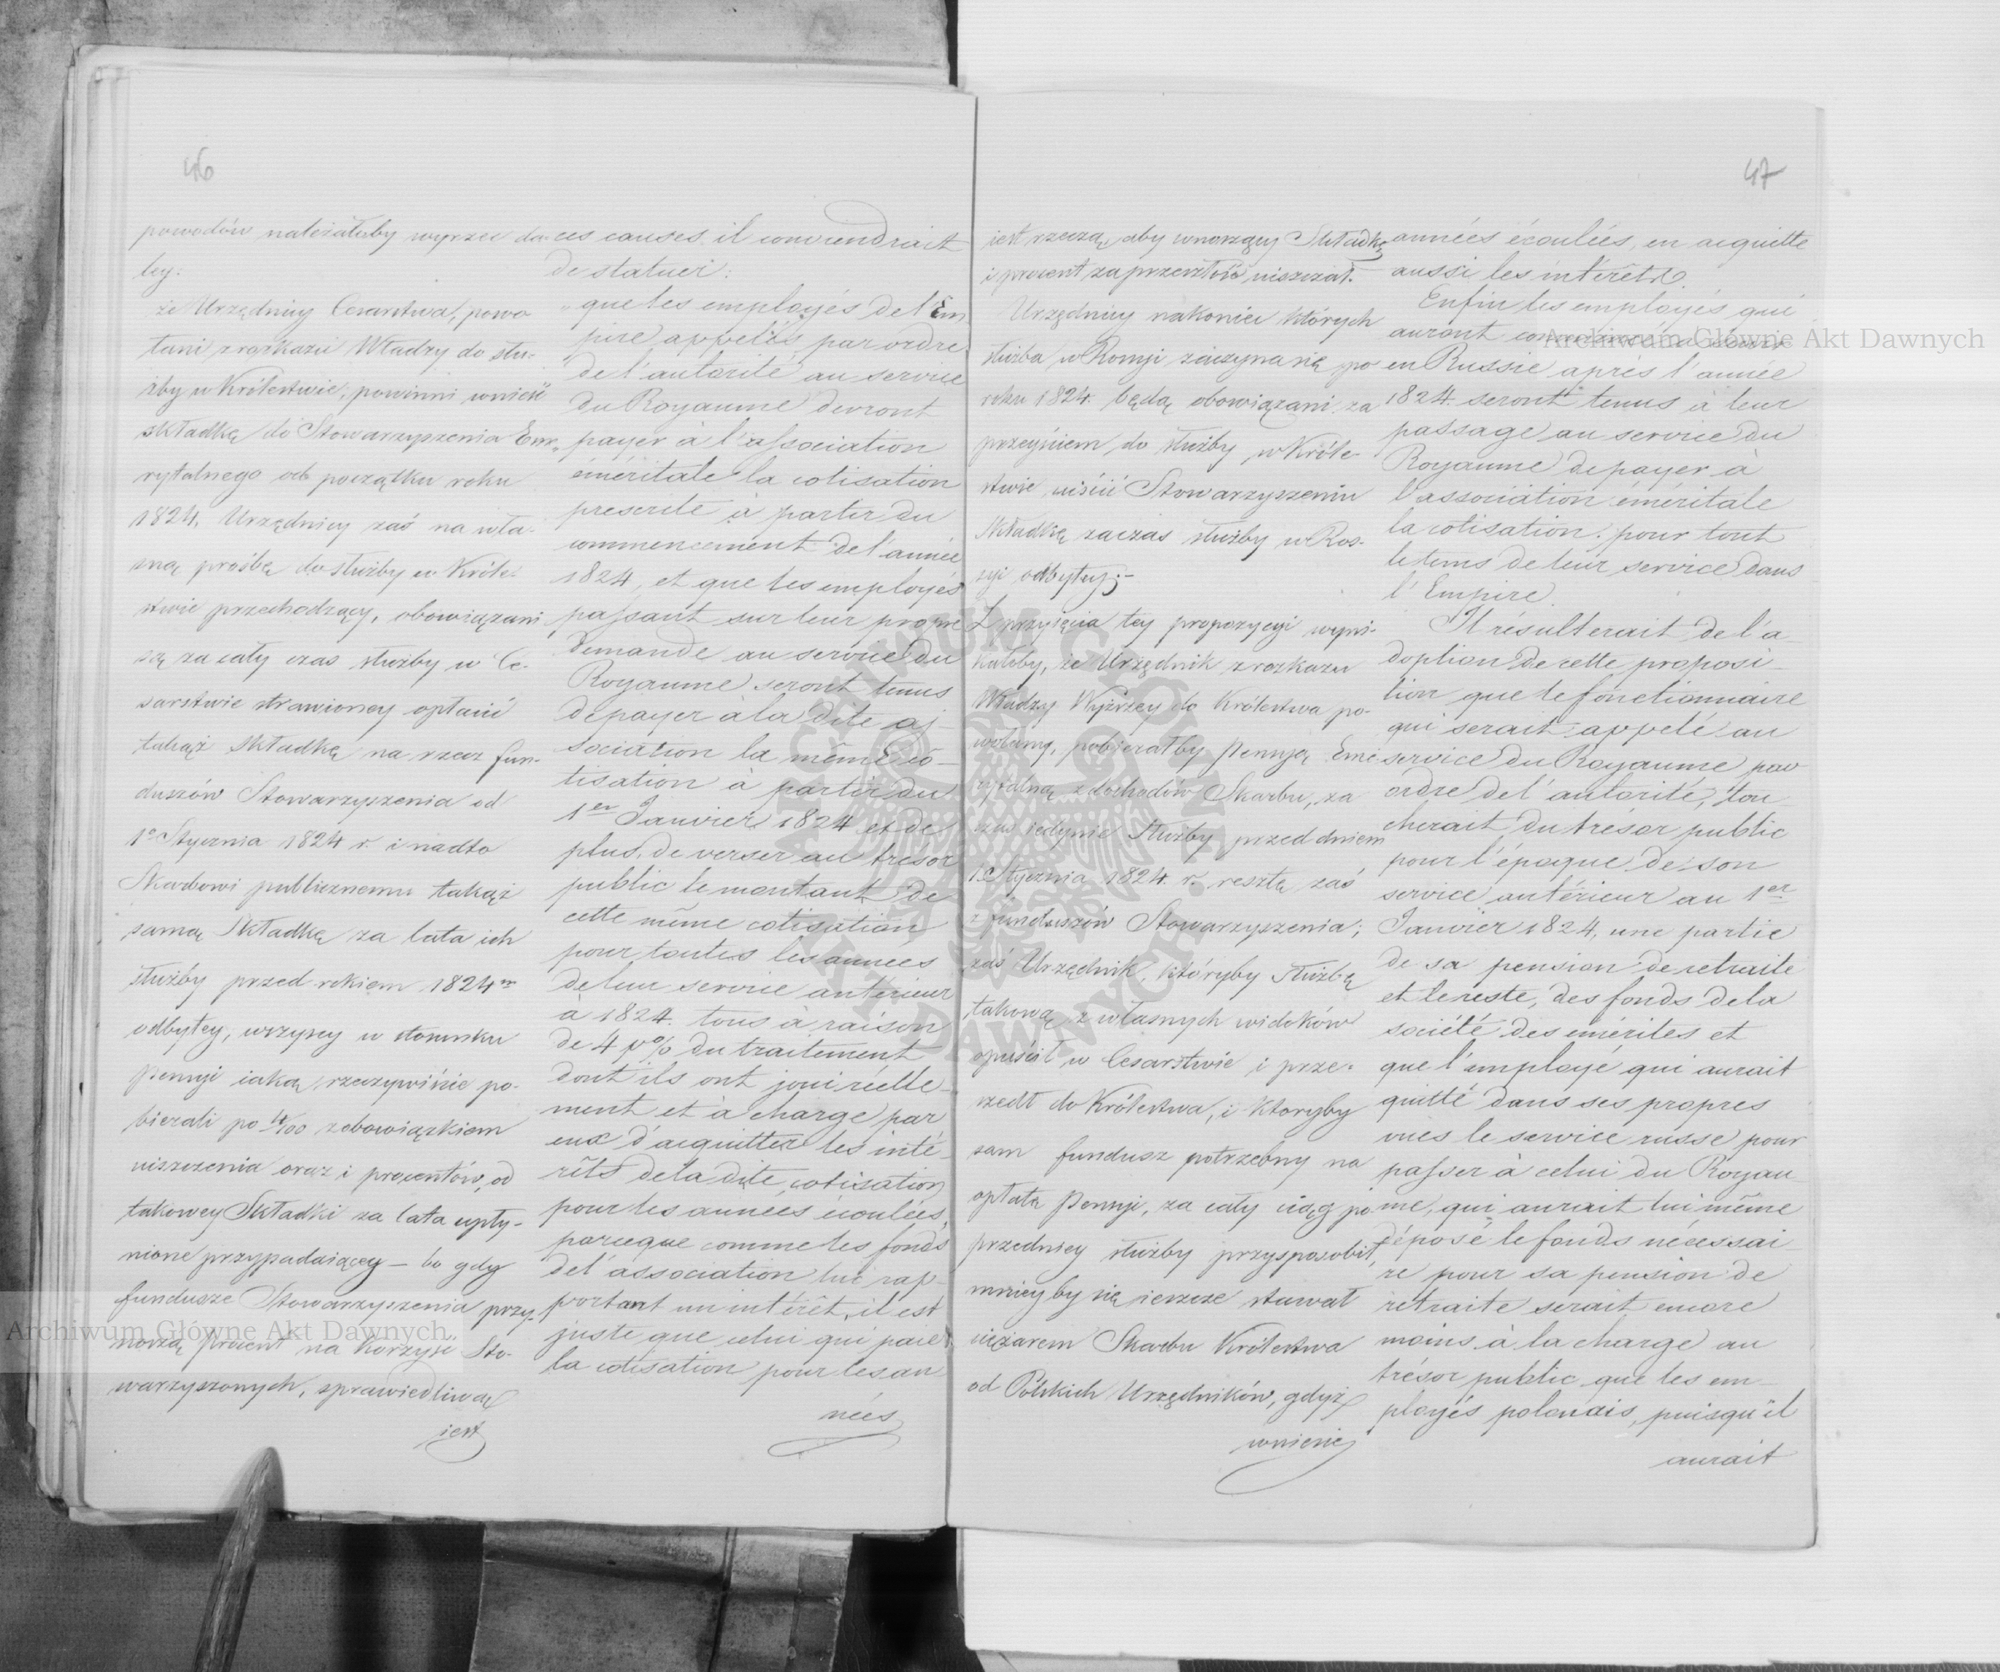 46
powodów należałoby wyrzec da-
ley:
że Urzędnicy Cesarstwa, powo-
łani z rozkazu Władzy do słu-
żby w Królestwie, powinni wnieść
składkę do Stowarzyszenia Eme-
rytalnego od początku roku
1824, Urzędnicy zaś na wła-
sną prośbę do służby w Króle-
stwie przechodzący, obowiązani
są za cały czas służby w Ce-
sarstwie strawioney opłacić
takąż składkę na rzecz fun-
duszów Stowarzyszenia od
1o Stycznia 1824 r. i nadto
Skarbowi publicznemu takąż
samą składkę za lata ich
służby przed rokiem 1824m
odbytey, wszyscy w stosunku
pensyi iaką rzeczywiście po-
bierali po 4/100 z obowiązkiem
uiszczenia oraz i procentów, od
takowey Składki za lata upły-
nione przypadaiącey – bo gdy
fundusze Stowarzyszenia przy-
noszą procent na korzyść Sto-
warzyszonych, sprawiedliwą
iest
ces causes il conviendrait
de statuer:
que les employés de l'Em
pire appelés par ordre
de l'autorité au service
du Royaume devront
payer à l'association
éméritale la cotisation
prescrite à partir du
commencement de l'année
1824, et que les employés
passant sur leur propre
demande au service du
Royaume seront tenus
de payer à la dite as-
sociation la même co-
tisation à partir du
1er Janvier 1824 et de
plus, de verser au trésor
public le montant de
cette même cotisation
pour toutes les années
de leur service antérieur
à 1824. tous à raison
de 4 p% du traitement
dont ils ont joui réelle-
ment et à charge par
eux d'acquitter les inté-
rêts de la dite cotisation
pour les années écoulées,
parceque comme les fonds
de l'association lui rap-
portant un intérêt, il est
juste que celui qui paie
la cotisation pour les an
nées
47
iest rzeczą, aby wnoszący Składkę
i procent za przeszłość uiszczał.
Urzędnicy nakoniec których
służba w Rossyi zaczyna się po
roku 1824. będą obowiązani za
przeyściem do służby w Króle-
stwie uiścić Stowarzyszeniu
Składkę za czas służby w Ros-
syi odbytey;–
Z przyięcia tey propozycyi wyni-
kałoby, że Urzędnik z rozkazu
Władzy Wyższey do Królestwa po-
wołany, pobierałby Pensyą Eme
rytalną z dochodów Skarbu, za
czas iedynie służby przed dniem
1 Stycznia 1824. r. resztę zaś
z funduszów Stowarzyszenia;
zaś Urzędnik, któryby służbę
takową z własnych widoków
opuścił w Cesarstwie i prze-
szedł do Królestwa, i któryby
sam fundusz potrzebny na
opłatę Pensyi, za cały ciąg po
przedniey służby przysposobił,
mnieyby się ieszcze stawał
ciężarem Skarbu Królestwa
od Polskich Urzędników, gdyż
wniesie
années écoulées, en acquitte
aussi les intérêts.
Enfin les employés qui
auront commencé à servir
en Russie après l'année
1824. seront tenus à leur
passage au service du
Royaume de payer à
l'association éméritale
la cotisation pour tout
le tems de leur service dans
l'Empire.
Il résulterait de l'a
doption de cette proposi-
tion que le fonctionnaire
qui serait appelé au
service du Royaume par
ordre de l'autorité, tou-
cherait du trésor public
pour l'époque de son
service antérieur au 1er
Janvier 1824, une partie
de sa pension de retraite
et le reste, des fonds de la
société des émérites et
que l'employé qui aurait
quitté dans ses propres
vues le service russe pour
passer à celui du Royau
me, qui aurait lui même
déposé le fonds nécessai
re pour sa pension de
retraite serait encore
moins à la charge au
trésor public que les em-
ployés polonais, puisqu'il
aurait
Archiwum Główne Akt Dawnych
Archiwum Główne Akt Dawnych
ARCHIWUM GŁÓWNE AKT DAWNYCH